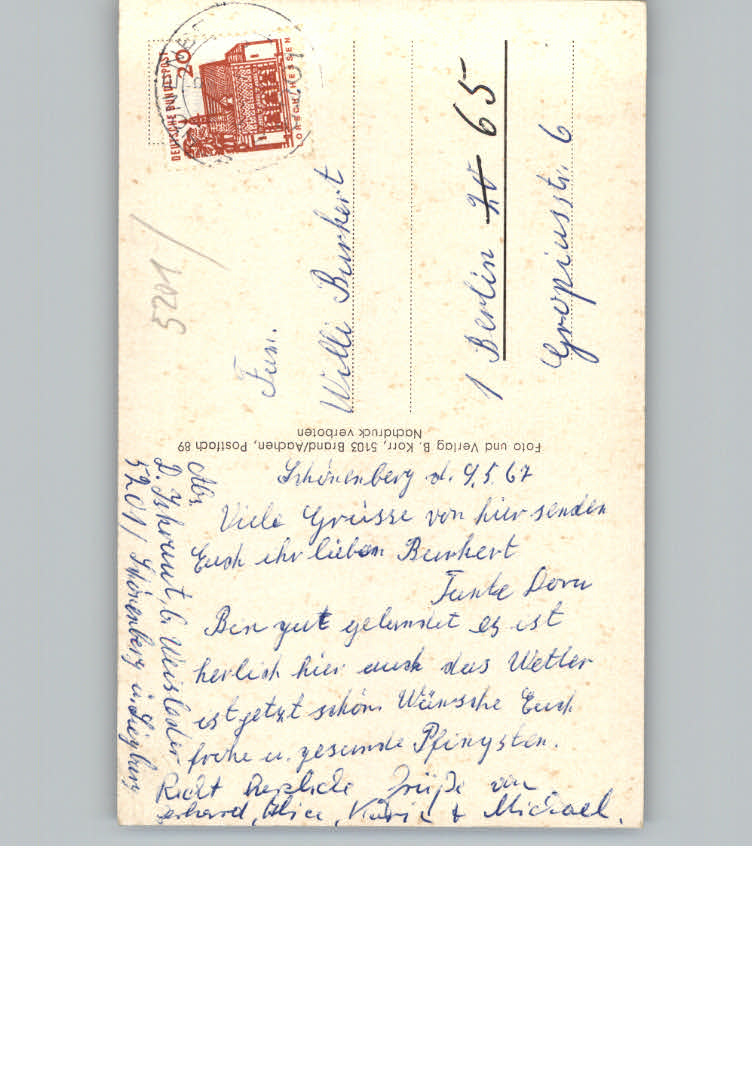 DEUTSCHE BUNDESPOST
20
LORSCH/HESSEN
5201/
Fam.
Willi Burkert
1 Berlin 20 65
Gropiusstr. 6
Foto und Verlag B. Korr, 5103 Brand/Aachen, Postfach 89
Nachdruck verboten
Schönenberg d. 9.5.67
Viele Grüsse von hier senden
Euch ihr lieben Burkert
Tante Dora
Bin gut gelandet es ist
herlich hier auch das Wetter
ist jetzt schön Wünsche Euch
frohe u. gesunde Pfingsten.
Recht herzliche Grüße von
Gerhard, Alice, Karin + Michael.
Abs.
D. b. Weisleder
5201 / Schönenberg ü. Siegburg